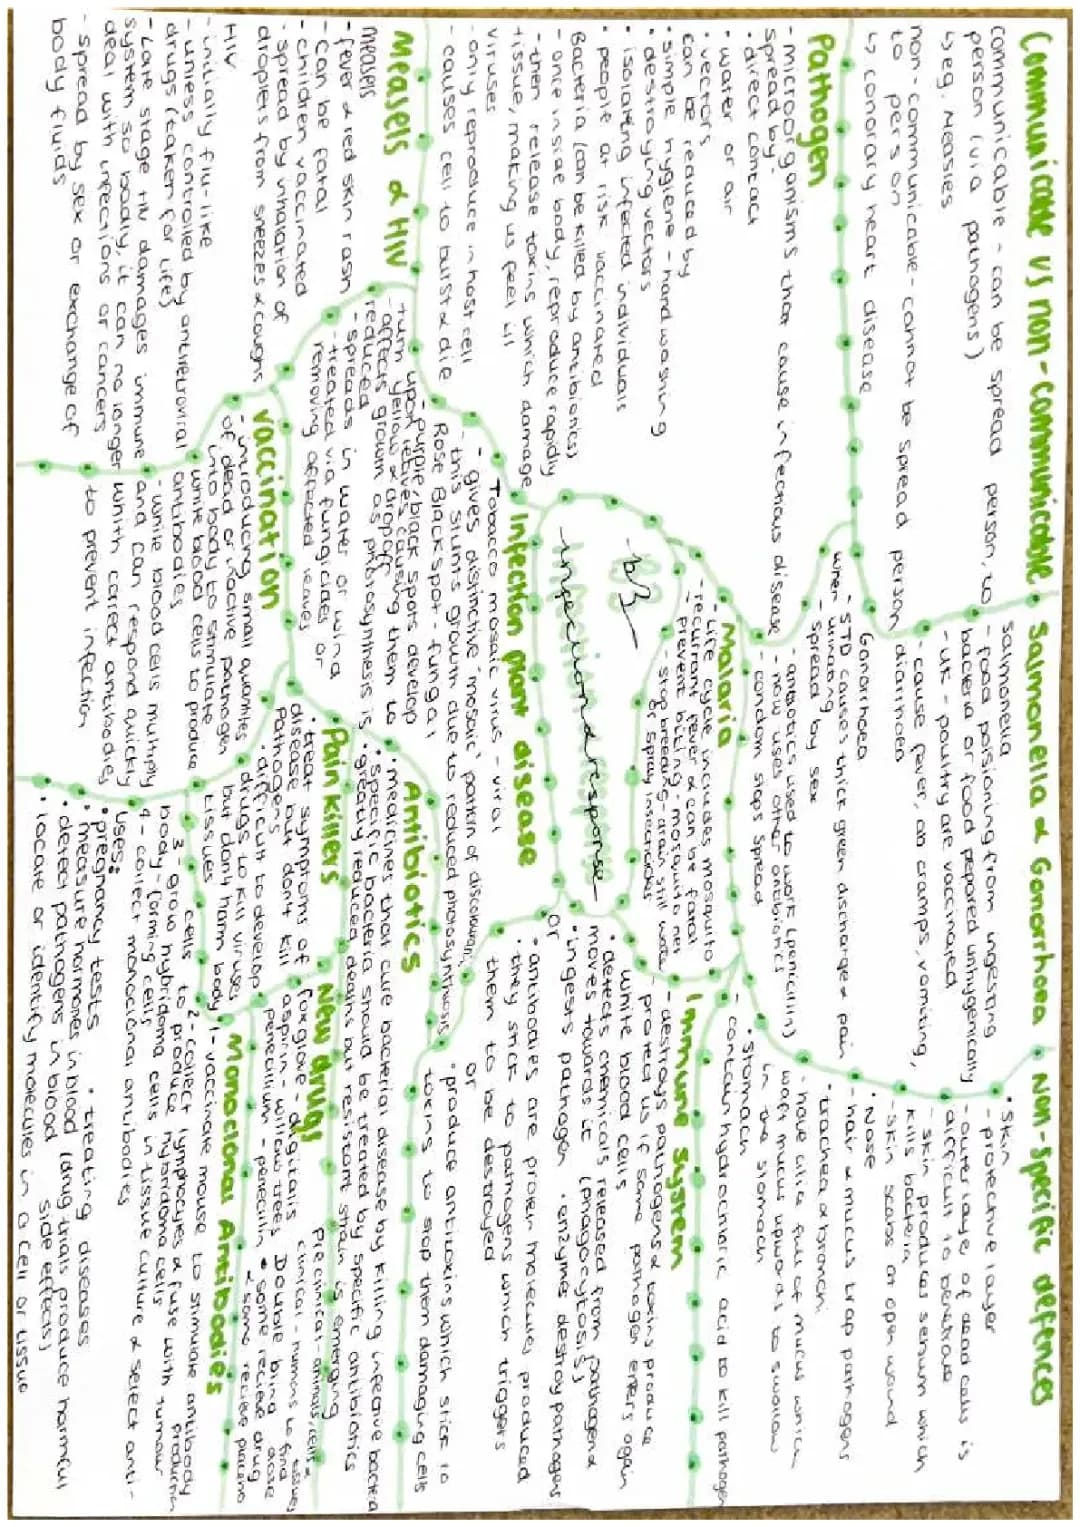 Communicable vs non-communicable
communicable - can be spread person, to
person (via pathogens)
↳ eg. Measles
non-communicable - cannot be spread person
to person
↳ conorary heart disease
Pathogen
- microorganisms that cause infectious disease
spread by:
• direct contact
• water or air
• vectors
can be reduced by
• simple hygiene - handwashing
• destroying vectors
• isolating infected individuals
• people at risk vaccinated
Bacteria (can be killed by antibionics)
- one inside body, reproduce rapidly
- then release toxins which damage
tissue, making us feel ill
viruses
- only reproduce in host cell
- causes cell to burst & die
Measels & HIV
Measels
- fever & red skin rash
- can be fatal
- children vaccinated
- spread by inhalation of
droplets from sneezes & coughs
HIV
- initially flu-like
- unless controlled by antiretroviral
drugs (taken for life)
- Late stage HIV damages immune
system so badly, it can no longer
deal with infections or cancers
- spread by sex or exchange of
body fluids
Salmonella & Gonorrhoea
Salmonella
- food poisioning from ingesting
bacteria or food pepared unhygenically
- UK - poultry are vaccinated
- cause fever, ab cramps, vomiting,
diarrhoea
Gonorrhoea
- STD causes thick green discharge & pain
when urinating
- spread by sex
- antibiotics used to work (penicillin)
- now uses other antibiotics
- condom stops spread
Malaria
- Life cycle includes mosquito
- recurrant fever & can be fatal
- prevent biting - mosquito net
- stop breeding - drain still water
or spray insecticides
B3
infection & response
Infection plant disease
Tobacco mosaic virus - viral
- gives distinctive 'mosaic' pattern of discolouration
- this stunts grown due to reduced photosynthisis
Rose Black spot - fungal
- purple/black spots develop
upon leaves, causing them to
turn yellow & drop off
- affects grown as photosynthesis is
reduced
- spreads in water or wind
- treated via fungicides or
removing affected leaves
Vaccination
- introducing small quantites
of dead or inactive pathogen
into body to stimulate
white blood cells to produce
antibodies
- white blood cells multiply
and can respond quickly
whith corect antibodies
to prevent infection
Non-specific defences
• Skin
- protective layer
- outer laye of dead cells is
difficult to penetrate
- skin produces serum which
kills bacteria
- skin scabs at open wound
• Nose
- hair & mucus trap pathogens
• trachea & bronchi
- have cilia full of mucus which
waft mucus upwards to swallow
in the stomach
• Stomach
- contain hydrochloric acid to kill pathogen
Immune System
- destroys pathogens & toxins produce
- protect us if same pathogen enters again
White blood cells
• detects chemicals released from pathogen &
moves towards it (phagocytosis)
• ingests pathogen • enzymes destroy pathogens
or
• antibodies are protein molecules produced
• they stick to pathogens which triggers
them to be destroyed
or
• produce antitoxins which stick to
toxins to stop them damaging cells
Antibiotics
• medicines that cure bacterial disease by killing infective bacteria
• specific bacteria should be treated by specific antibiotics
• greatly reduced deaths but resistant strain is emerging
Painkillers
• treat symptoms of
disease but don't kill
pathogens
• difficult to develop
drugs to kill viruses
but don't harm body
tissues
New drugs
foxglove - digitalis
aspirin - willow trees
penecillium - penecillin
Preclinical - animals, cells & tissues
clinical - humans to find dose
Double blind
• some recieve drug
& some recieve placebo
Monoclonal Antibodies
1 - vaccinate mouse to stimulate antibody production
2 - collect lymphocytes & fuse with tumour
cells to produce hybridoma cells
3 - grow hybridoma cells in tissue culture & select anti-
body-forming cells
4 - collect monoclonal antibodies
uses:
• pregnancy tests
• measure hormones in blood
• detect pathogens in blood
• locate or identify molecules in a cell or tissue
• treating diseases
(drug trials produce harmful
side effects)